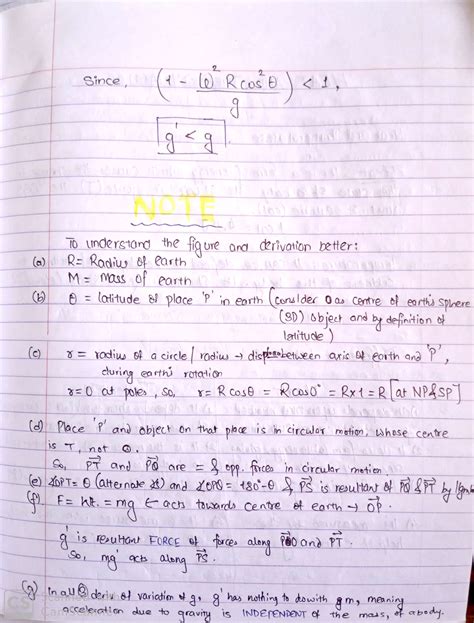 Since, (1 - ω² R cos²θ / g) < 1,
g' < g
NOTE
To understand the figure and derivation better:
(a) R = Radius of earth
M = Mass of earth
(b) θ = latitude of place 'P' in earth (consider O as centre of earth's sphere
(3D) object and by definition of
latitude)
(c) r = radius of a circle / radius → disp between axis of earth and 'P',
during earth's rotation
r=0 at poles, so, r = R cosθ = R cos0° = R×1 = R [at NP & SP]
(d) Place 'P' and object on that place is in circular motion, whose centre
is T, not O.
So, PT and PQ are = & opp. forces in circular motion
(e) ∠OPT = θ (alternate ∠s) and ∠OPQ = 180°-θ & PS is resultant of PQ & PT by
(f) F = ht. = mg ← acts towards centre of earth → OP.
g' is resultant FORCE of forces along PO and PT.
So, mg' acts along PS.
(g) In all deriv of variation of g, g' has nothing to do with m, meaning
acceleration due to gravity is INDEPENDENT of the mass, of a body.
CS